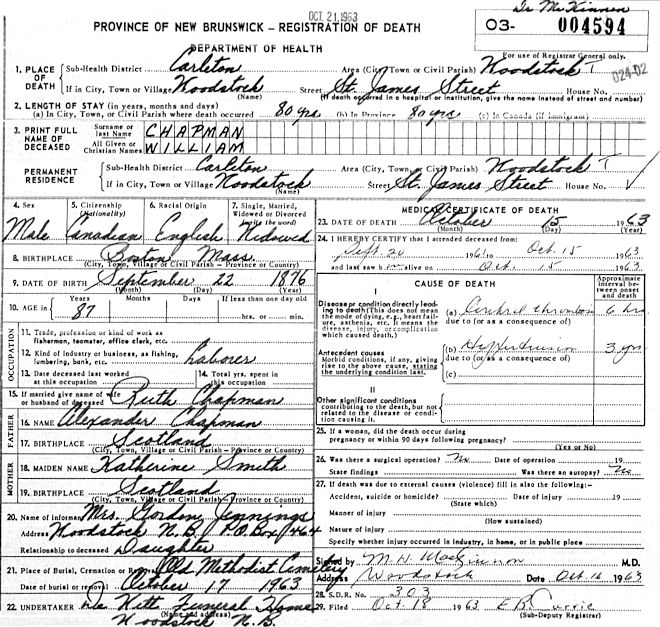 OCT 21, 1963
Dr McKinnon
PROVINCE OF NEW BRUNSWICK – REGISTRATION OF DEATH
03- 004594
DEPARTMENT OF HEALTH
For use of Registrar General only.
024-02
1. PLACE OF DEATH Sub-Health District Carleton Area (City, Town or Civil Parish) Woodstock T
If in City, Town or Village Woodstock (Name) Street St. James Street House No.
(If death occurred in a hospital or institution, give the name instead of street and number)
2. LENGTH OF STAY (in years, months and days)
(a) In City, Town, or Civil Parish where death occurred 80 yrs (b) In Province 80 yrs (c) In Canada (if immigrant)
3. PRINT FULL NAME OF DECEASED Surname or last Name CHAPMAN
All Given or Christian Names WILLIAM
PERMANENT RESIDENCE Sub-Health District Carleton Area (City, Town or Civil Parish) Woodstock T
If in City, Town or Village Woodstock (Name) Street St. James Street House No.
4. Sex Male
5. Citizenship (Nationality) Canadian
6. Racial Origin English
7. Single, Married, Widowed or Divorced (write the word) Widowed
8. BIRTHPLACE Boston Mass
(City, Town, Village or Civil Parish – Province or Country)
9. DATE OF BIRTH September 22 1876
(Month) (Day) (Year)
10. AGE in Years 87 Months Days If less than one day old
hrs. or min.
OCCUPATION
11. Trade, profession or kind of work as fisherman, teamster, office clerk, etc.
12. Kind of industry or business, as fishing, lumbering, bank, etc. Laborer
13. Date deceased last worked at this occupation
14. Total yrs. spent in this occupation
15. If married give name of wife or husband of deceased Ruth Chapman
FATHER
16. NAME Alexander Chapman
17. BIRTHPLACE Scotland
(City, Town, Village or Civil Parish – Province or Country)
MOTHER
18. MAIDEN NAME Katherine Smith
19. BIRTHPLACE Scotland
(City, Town, Village or Civil Parish – Province or Country)
20. Name of informant Mrs. Gordon Jennings
Address Woodstock N.B. P.O. Box 464
Relationship to deceased Daughter
21. Place of Burial, Cremation or Removal Old Methodist Cemetery
Date of burial or removal October 17 1963
22. UNDERTAKER De Witt Funeral Home
(Name and address)
Woodstock N.B.
MEDICAL CERTIFICATE OF DEATH
23. DATE OF DEATH October 15 1963
(Month) (Day) (Year)
24. I HEREBY CERTIFY that I attended deceased from:
Sept 20 1961 to Oct. 15 1963
and last saw h alive on Oct. 15 1963
CAUSE OF DEATH
Approximate interval between onset and death
I
Disease or condition directly leading to death (This does not mean the mode of dying, e.g., heart failure, asthenia, etc. It means the disease, injury, or complication which caused death.)
(a) Cerebral thrombosis 6 hrs
due to (or as a consequence of)
Antecedent causes
Morbid conditions, if any, giving rise to the above cause, stating the underlying condition last.
(b) Hypertension 3 yrs
due to (or as a consequence of)
(c)
II
Other significant conditions
contributing to the death, but not related to the disease or condition causing it.
25. If a woman, did the death occur during pregnancy or within 90 days following pregnancy?
(Yes or No)
26. Was there a surgical operation? No Date of operation 19
State findings Was there an autopsy? No
27. If death was due to external causes (violence) fill in also the following:-
Accident, suicide or homicide? Date of injury 19
(State which)
Manner of injury
(How sustained)
Nature of injury
Specify whether injury occurred in industry, in home, or in public place
Signed by M.D.
Address Woodstock Date Oct 16 1963
28. S.D.R. No. 303
29. Filed Oct 18 1963 E B. Currie
(Sub-Deputy Registrar)